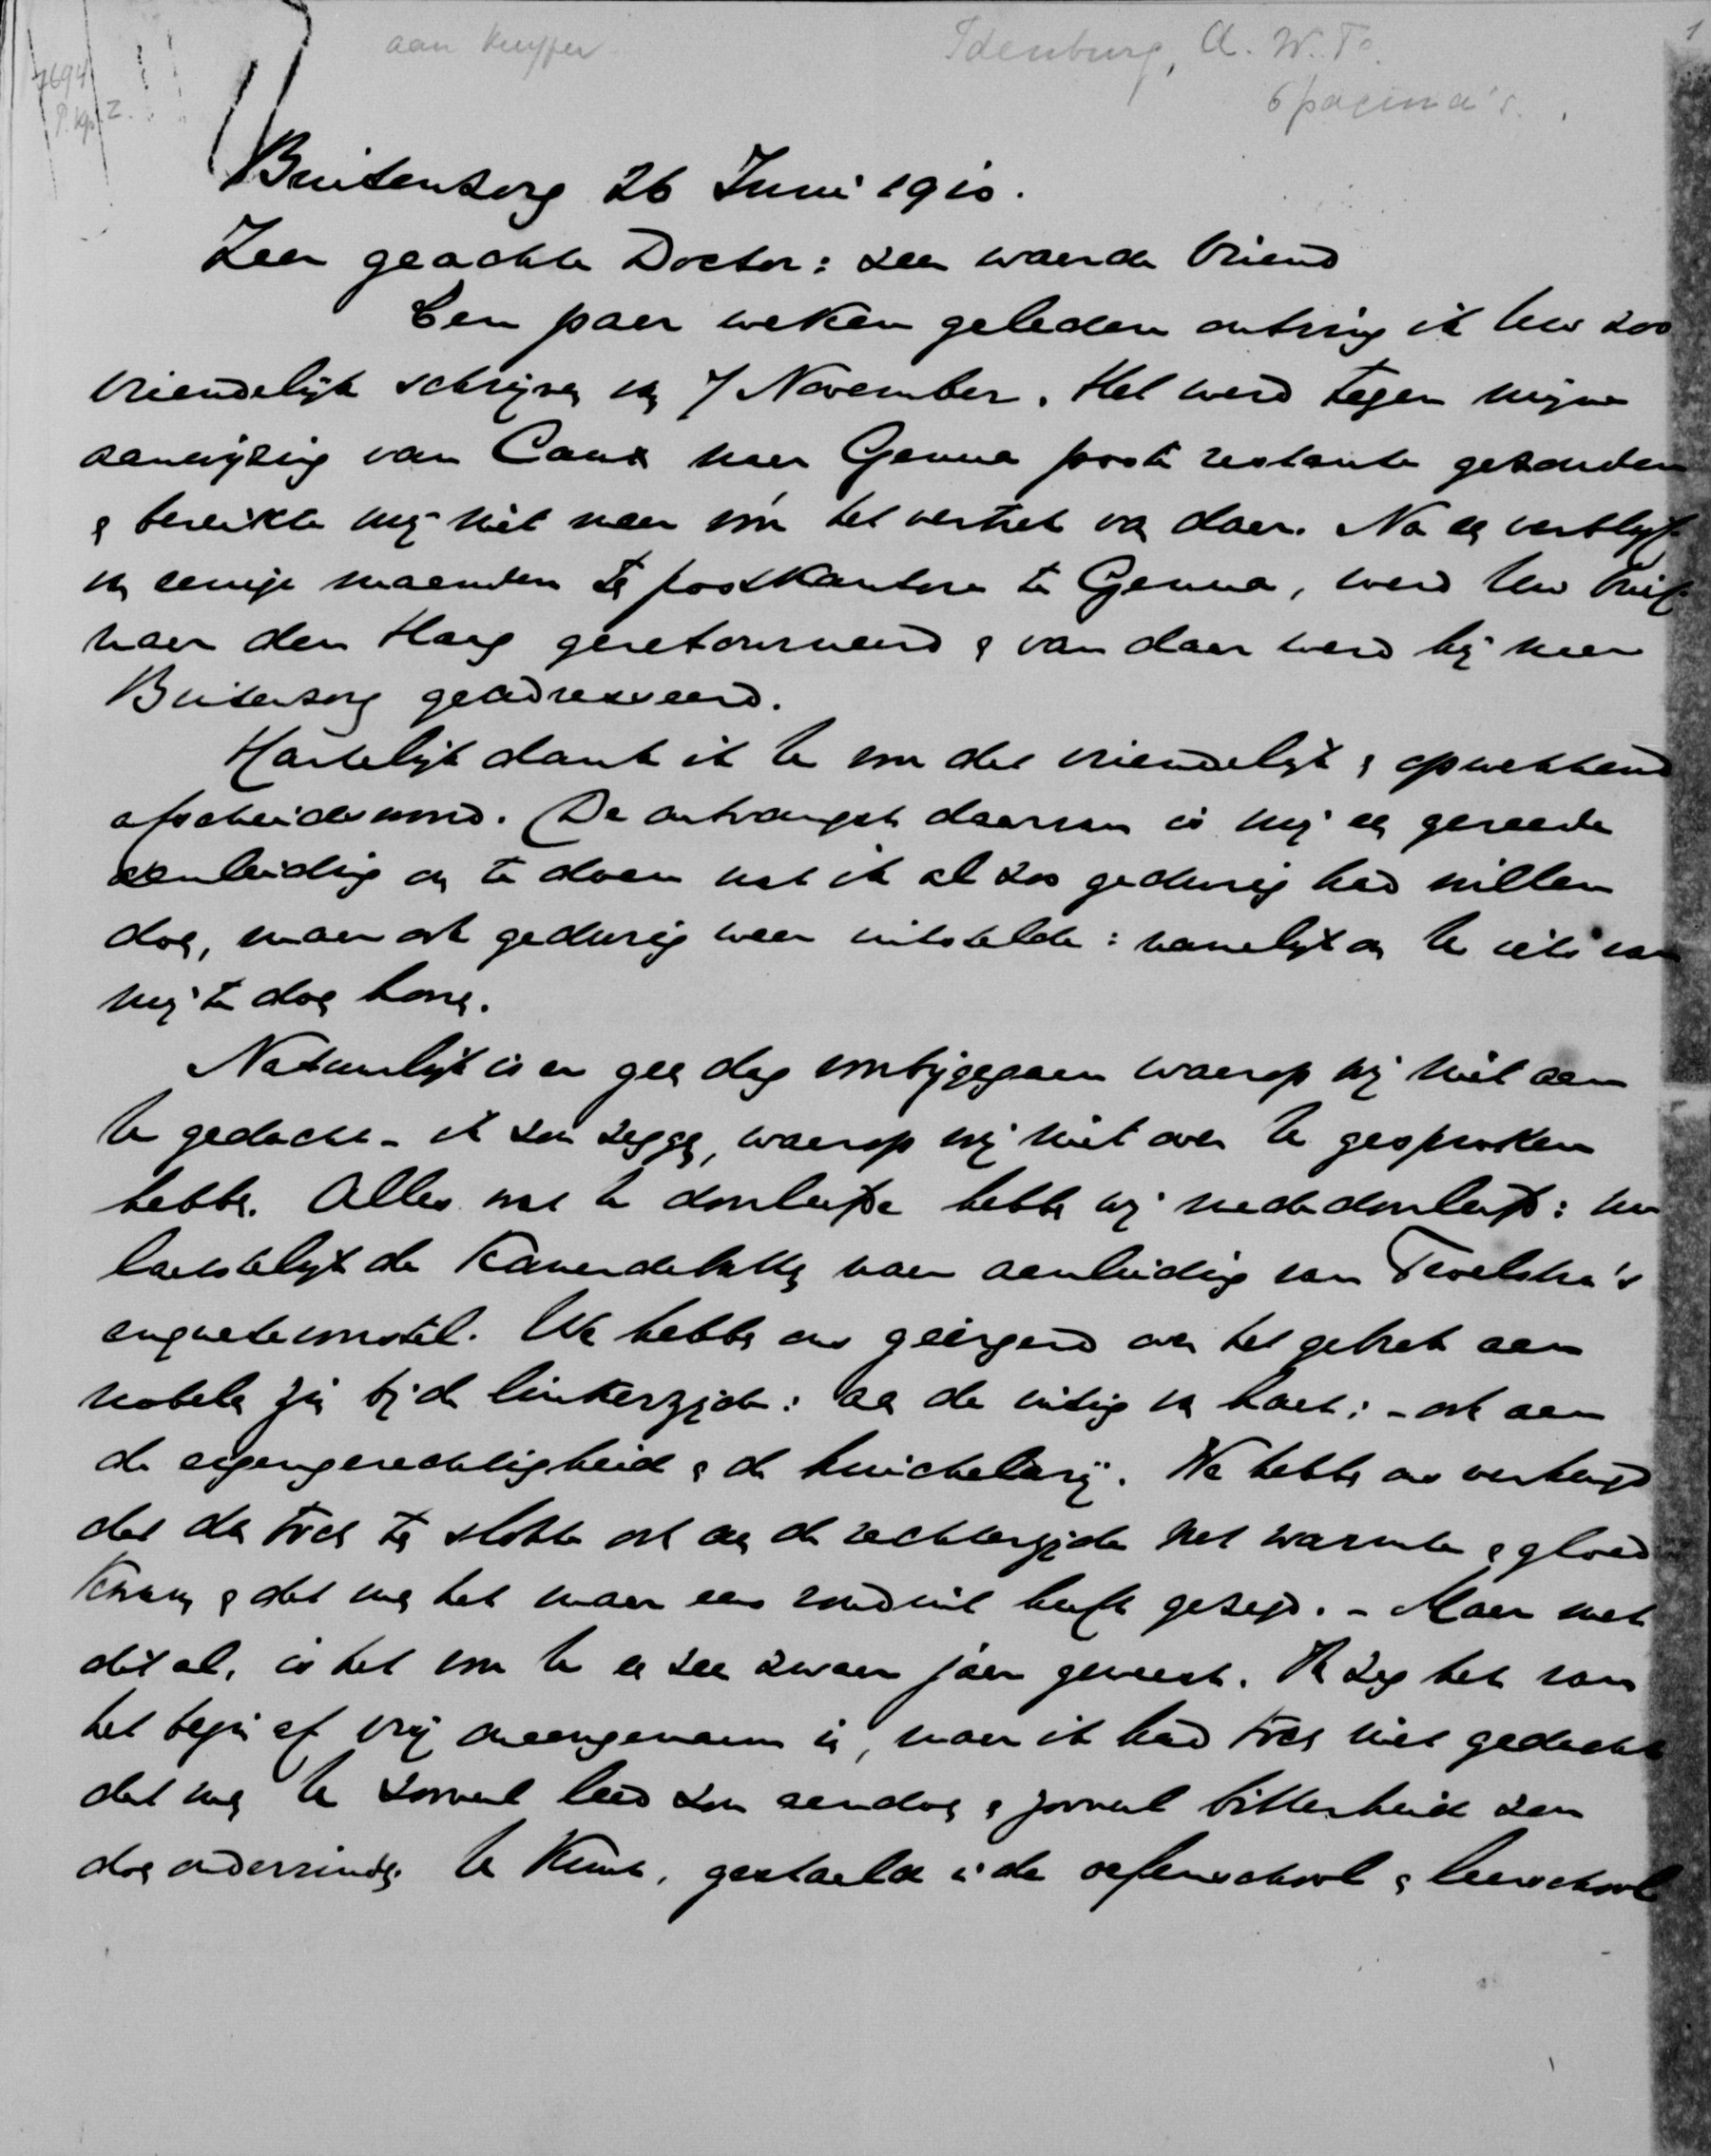 aan Kuyper
Idenburg, A. W. F.
1
7694
P. Kps 2.
6 pagina's.
Buitenzorg 26 Juni 1910.
Zeer geachte Doctor: zeer waarde Vriend
Een paar weken geleden ontving ik Uw zoo
vriendelijk schrijven van 7 November. Het werd tegen mijne
aanwijzing van Caux naar Genua poste restante gezonden
& bereikte mij niet meer vóór het vertrek van daar. Na een verblijf
van eenige maanden ten postkantore te Genua, werd Uw brief
naar den Haag geretourneerd & van daar werd hij naar
Buitenzorg geadresseerd.
Hartelijk dank ik U voor dat vriendelijk & opwekkend
afscheidswoord. De ontvangst daarvan is mij een gereede
aanleiding om te doen wat ik al zoo gedurig had willen
doen, maar ook gedurig weer uitstelde: namelijk om U iets van
mij te doen hooren.
Natuurlijk is er geen dag voorbijgegaan waarop wij niet aan
U gedacht - ik zou zeggen, waarop wij niet over U gesproken
hebben. Alles wat U doorleefde hebben wij mede doorleefd: nu
laatstelijk de Kamerdebatten naar aanleiding van Troelstra's
enquetevoorstel. We hebben ons geërgerd over het gebrek aan
nobelen zin bij de linkerzijde: aan de uiting van haat: - ook aan
de eigengerechtigheid & de huichelarij. We hebben ons verheugd
dat er toch ten slotte ook aan de rechterzijde wat warmte & gloed
kwam & dat men het maar eens ronduit heeft gezegd. - Maar met
dit al, is het voor U een zeer zwaar jaar geweest. Ik zag het van
het begin af vrij onaangenaam in, maar ik had toch niet gedacht
dat men U zooveel leed zou aandoen & zooveel bitterheid zou
doen ondervinden. U kunt, gestaald in de oefenschool & leerschool